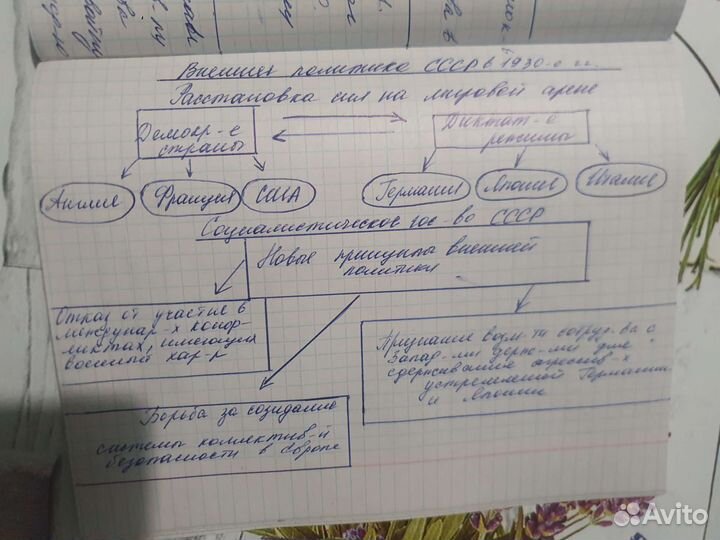 Внешняя политика СССР в 1930-е гг.
Расстановка сил на мировой арене
Демокр-е
страны
Диктат-е
режимы
Англия
Франция
США
Германия
Япония
Италия
Социалистическое гос-во СССР
Новые принципы внешней
политики
Отказ от участия в
междунар-х конф-
ликтах, имеющих
военный хар-р
Признание возм-ти сотруд-ва с
Запад-ми держ-ми для
сдерживания агрессив-х
устремлений Германии
и Японии
Борьба за созидание
системы коллектив-й
безопасности в Европе
Avito